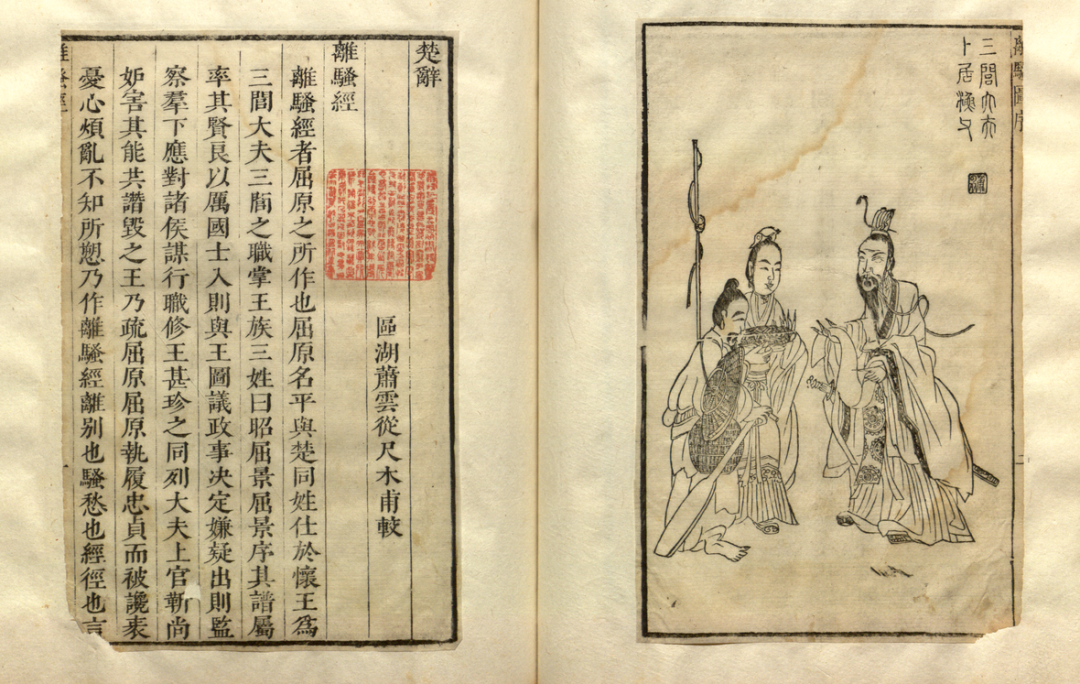 離騷圖序
二
三閭大夫
卜居漁父
楚辭
區湖蕭雲從尺木甫較
離騷經
離騷經者屈原之所作也屈原名平與楚同姓仕於懷王爲
三閭大夫三閭之職掌王族三姓曰昭屈景屈景序其譜屬
率其賢良以厲國士入則與王圖議政事决定嫌疑出則監
察羣下應對諸侯謀行職修王甚珍之同列大夫上官靳尚
妒害其能共譖毀之王乃疏屈原屈原執履忠貞而被讒衺
憂心煩亂不知所愬乃作離騷經離别也騷愁也經徑也言
離騷經
一